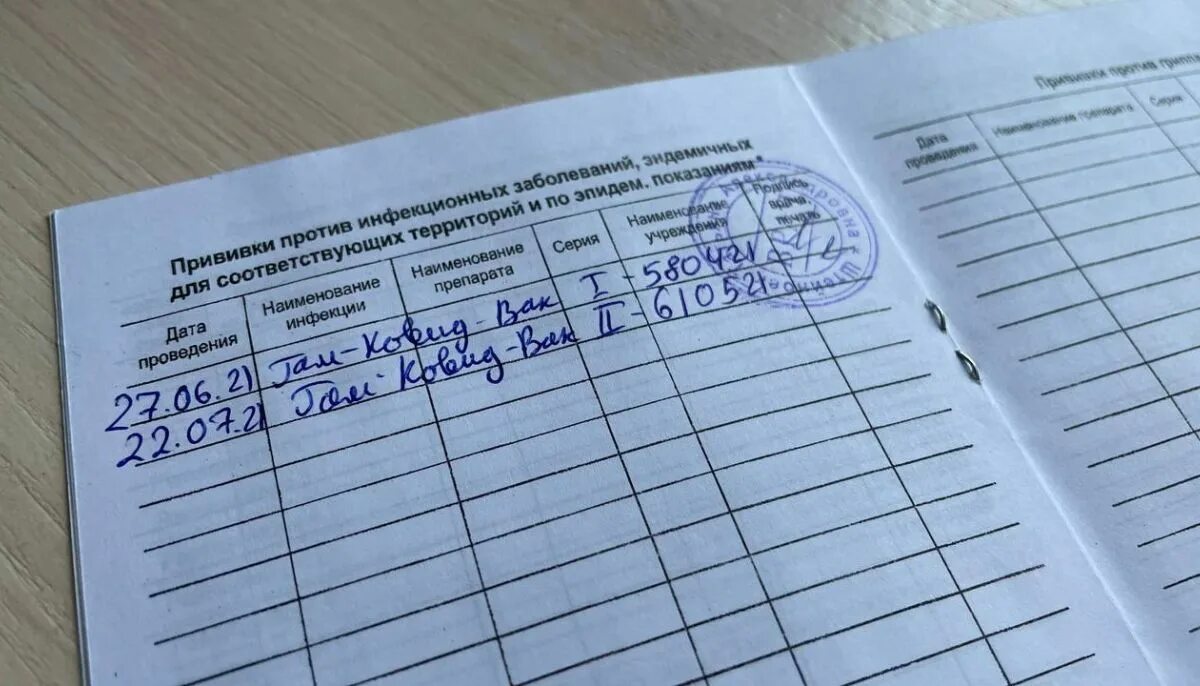 Прививки против инфекционных заболеваний, эндемичных
для соответствующих территорий и по эпидем. показаниям*
Дата
проведения
Наименование
инфекции
Наименование
препарата
Серия
Наименование
учреждения
Подпись
врача,
печать
27.06.21 Гам-Ковид-Вак I - 580421
22.07.21 Гам-Ковид-Вак II - 610521
Прививки против гриппа
Дата
проведения
Наименование препарата
Серия